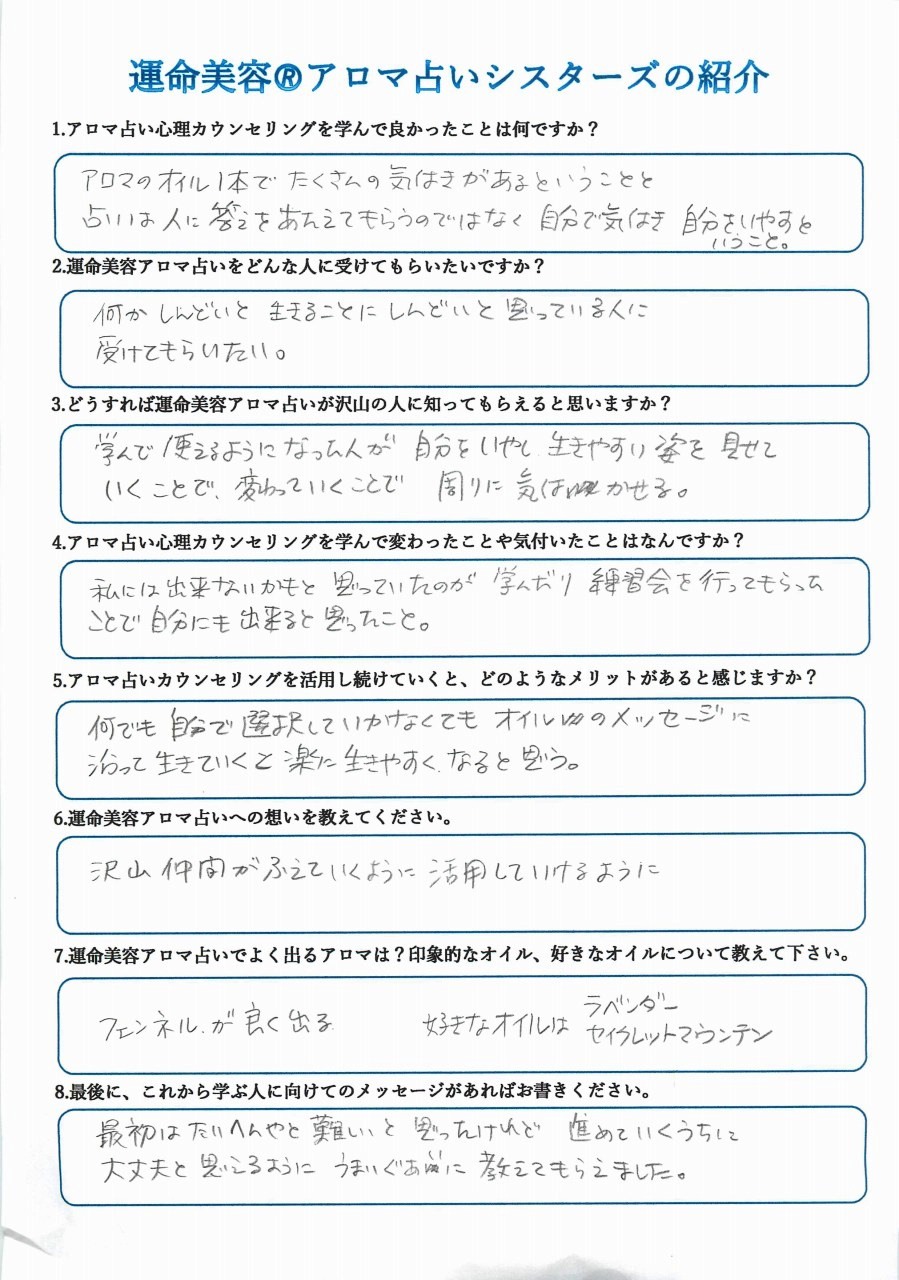 運命美容®アロマ占いシスターズの紹介
1.アロマ占い心理カウンセリングを学んで良かったことは何ですか？
アロマのオイル1本で たくさんの気はきがあるということと
占いは人に答えをあたえてもらうのではなく 自分で気はき 自分をいやすと
いうこと。
2.運命美容アロマ占いをどんな人に受けてもらいたいですか？
何か しんどいと 生きることに しんどいと 思っている人に
受けてもらいたい。
3.どうすれば運命美容アロマ占いが沢山の人に知ってもらえると思いますか？
学んで 使えるようになった人が 自分をいやし 生きやすい 姿を 見せて
いくことで、変わっていくことで 周りに 気は かせる。
4.アロマ占い心理カウンセリングを学んで変わったことや気付いたことはなんですか？
私には 出来ないかもと 思っていたのが 学んだり 練習会を行ってもらった
ことで 自分にも 出来ると 思ったこと。
5.アロマ占いカウンセリングを活用し続けていくと、どのようなメリットがあると感じますか？
何でも 自分で 選択していかなくても オイル のメッセージに
沿って 生きていくと 楽に 生きやすく なると思う。
6.運命美容アロマ占いへの想いを教えてください。
沢山 仲間がふえていくように 活用していけるように
7.運命美容アロマ占いでよく出るアロマは？印象的なオイル、好きなオイルについて教えて下さい。
フェンネル が 良く出る 好きなオイルは ラベンダー
セイクレットマウンテン
8.最後に、これから学ぶ人に向けてのメッセージがあればお書きください。
最初は たいへんやと 難しいと 思ったけれど 進めていくうちに
大丈夫と 思えるように うまいぐあいに 教えてもらえました。